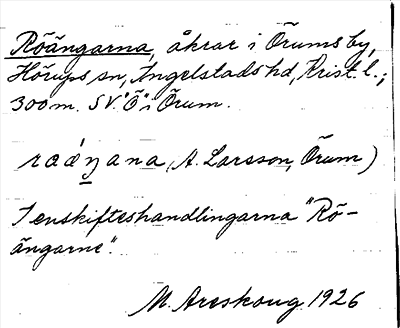 Röängarna, åkrar i Örums by,
Hörups sn, Ingelstads hd, Krist. l.;
300 m. SV. "Ö" i Örum.
raáŋana (A. Larsson, Örum)
I enskifteshandlingarna "Rö-
ängarne".
M. Areskoug 1926